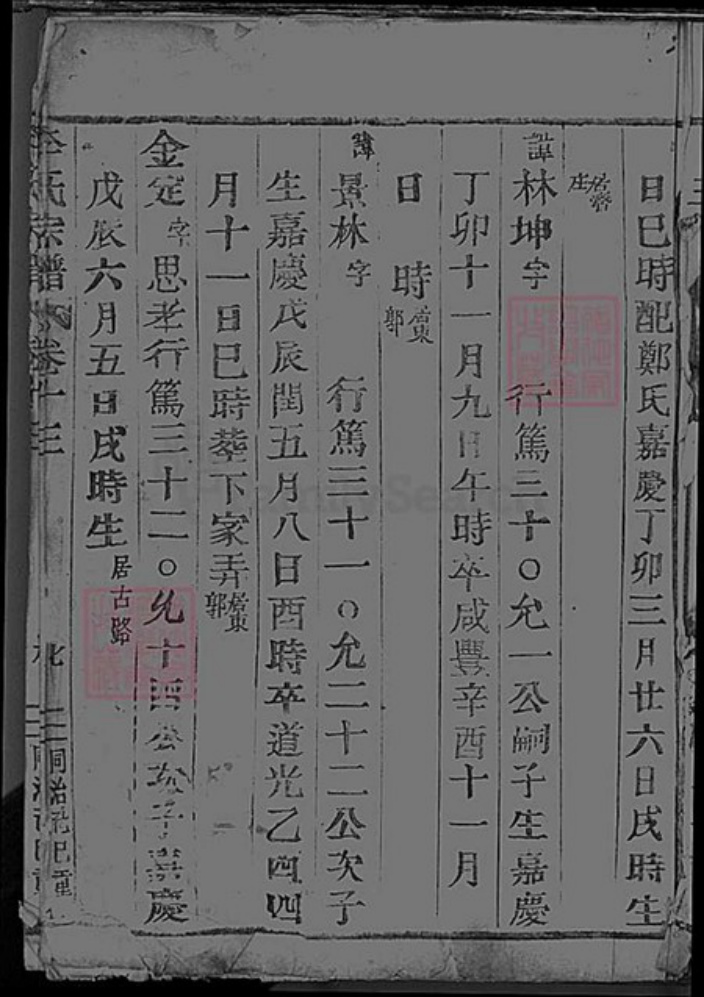 日巳時配鄭氏嘉慶丁卯三月廿六日戌時生
居濟庄
諱林坤字 行篤三十○允一公嗣子生嘉慶
丁卯十一月九日午時卒咸豐辛酉十一月
日 時居東郭
諱景林字 行篤三十一○允二十二公次子
生嘉慶戊辰閏五月八日酉時卒道光乙酉四
月十一日巳時葬下家弄居東郭
金定字思孝行篤三十二○允十四公次子嘉慶
戊辰六月五日戌時生居古路
氏宗譜 卷十三